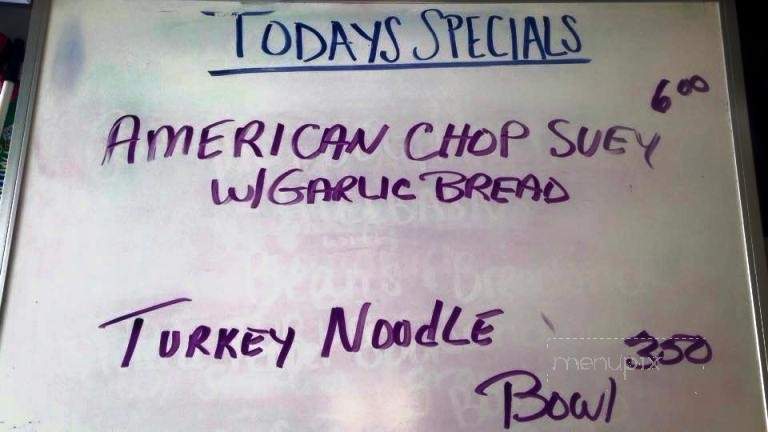 TODAYS SPECIALS
6 00
AMERICAN CHOP SUEY
W/GARLIC BREAD
TURKEY NOODLE
350
menupix
BOWL